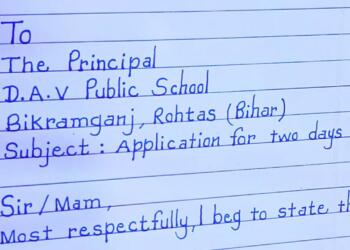 To
The Principal
D.A.V Public School
Bikramganj, Rohtas (Bihar)
Subject : Application for two days
Sir/Mam,
Most respectfully, I beg to state